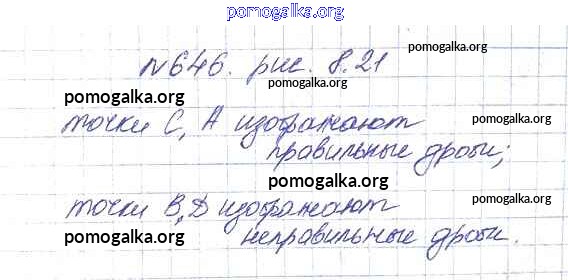 pomogalka.org
№646. рис. 8.21
pomogalka.org
pomogalka.org
pomogalka.org
точки С, А изображают
правильные дроби;
pomogalka.org
точки В, D изображают
pomogalka.org
неправильные дроби.
pomogalka.org